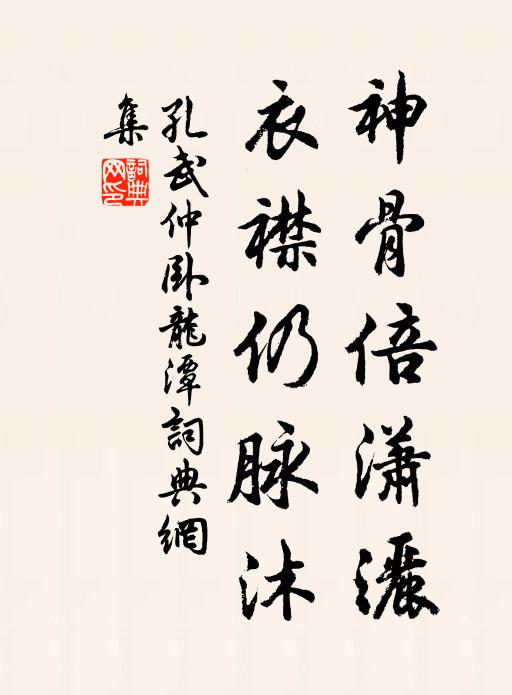 神骨倍瀟灑
衣襟仍脉沐
孔武仲卧龍潭詞典網
集
詞典網印